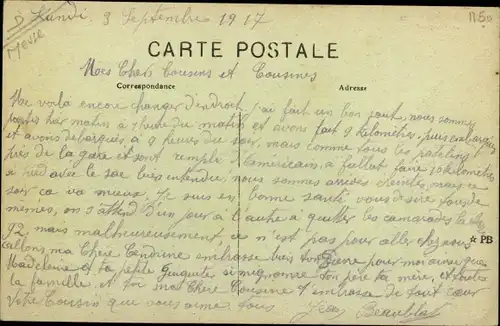 Lundi, 3 Septembre 1917
Meuse
CARTE POSTALE
Mes Chers Cousins et Cousines
Correspondance
Adresse
Me voilà encore changer d'endroit, j'ai fait un bon saut, nous sommes
partis hier matin à 7 heure du matin et avons fait 9 kilomètres, puis embarquer
et avons débarqués à 9 heures du soir, mais comme tous les patelins
près de la gare et sont rempli d'américain, a fallut faire 10 kilomètres
à pied avec le sac bien entendu, nous sommes arrivés éreintés, mais ce
soir ça va mieux. Je suis en bonne santé vous désire tous de
mêmes, on s'attend d'un jour à l'autre à quitter les camarades la
92, mais malheureusement, ce n'est pas pour aller chez nous
★ PB
allons ma Chère embrasse bien ton Pierre pour moi ainsi que
Madeleine et ta petite si mignonne ton père ta mère, et toute
la famille. Et toi ma Chère Cousine t'embrasse de tout cœur
Votre Cousin que vous aime tous Jean